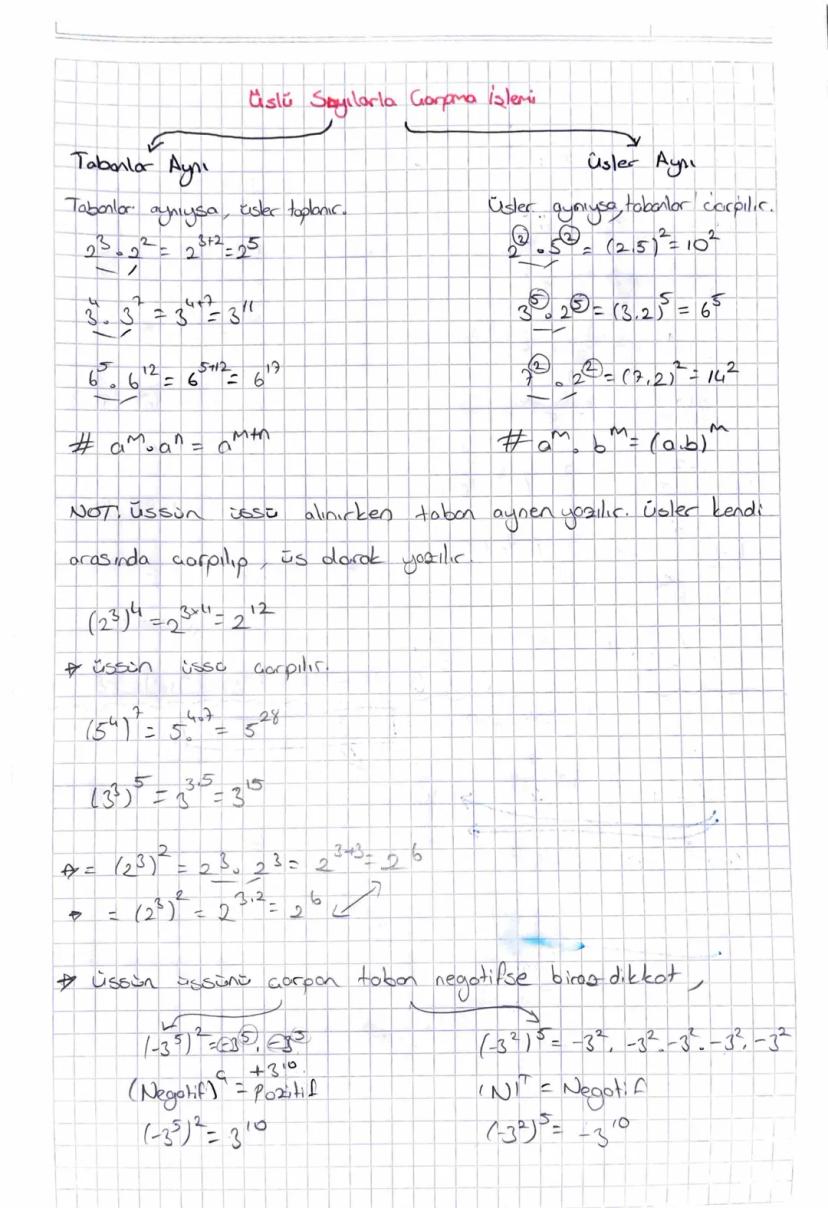 Üslü Sayılarla Çarpma İşlemi
Tabanlar Aynı
Tabanlar aynıysa, üsler toplanır.
2³ . 2² = 2³⁺² = 2⁵
3⁴ . 3⁷ = 3⁴⁺⁷ = 3¹¹
6⁵ . 6¹² = 6⁵⁺¹² = 6¹⁷
# aᵐ . aⁿ = aᵐ⁺ⁿ
Üsler Aynı
Üsler aynıysa, tabanlar çarpılır.
2² . 5² = (2.5)² = 10²
3⁵ . 2⁵ = (3.2)⁵ = 6⁵
7² . 2² = (7.2)² = 14²
# aᵐ . bᵐ = (a.b)ᵐ
NOT: Üssün üssü alınırken taban aynen yazılır. Üsler kendi
arasında çarpılıp, üs olarak yazılır.
(2³)⁴ = 2³ˣ⁴ = 2¹²
→ Üssün üssü çarpılır.
(5⁴)⁷ = 5^4.7 = 5²⁸
(3³)⁵ = 3^3.5 = 3¹⁵
→ = (2³)² = 2³ . 2³ = 2³⁺³ = 2⁶
→ = (2³)² = 2^3.2 = 2⁶
→ Üssün üssünü çarpan taban negatifse biraz dikkat,
(-3⁵)² = -3⁵ . -3⁵
+3¹⁰
(Negatif)^Ç = Pozitif
(-3⁵)² = 3¹⁰
(-3²)⁵ = -3² . -3² . -3² . -3² . -3²
(N)ᵀ = Negatif
(-3²)⁵ = -3¹⁰